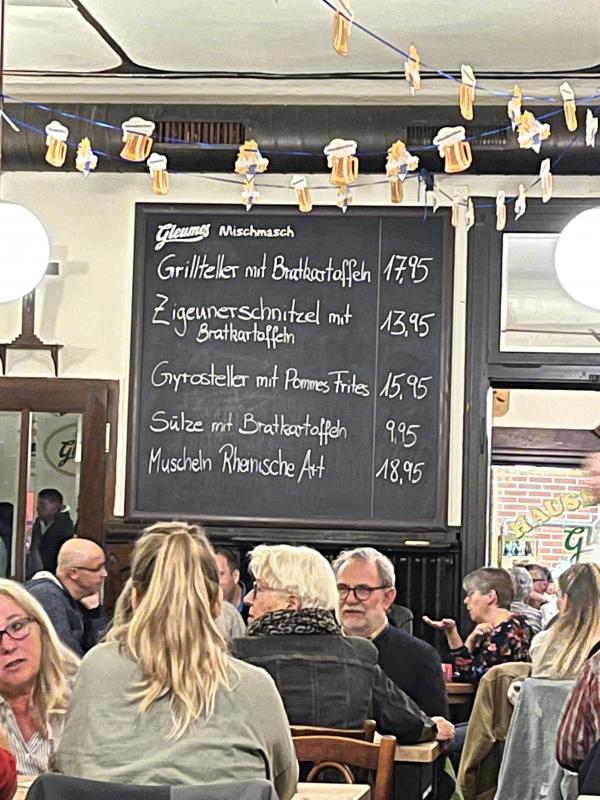 Gleumes Mischmasch
Grillteller mit Bratkartoffeln 17,95
Zigeunerschnitzel mit 13,95
Bratkartoffeln
Gyrosteller mit Pommes Frites 15,95
Sülze mit Bratkartoffeln 9,95
Muscheln Rheinische Art 18,95
HAUSB
G